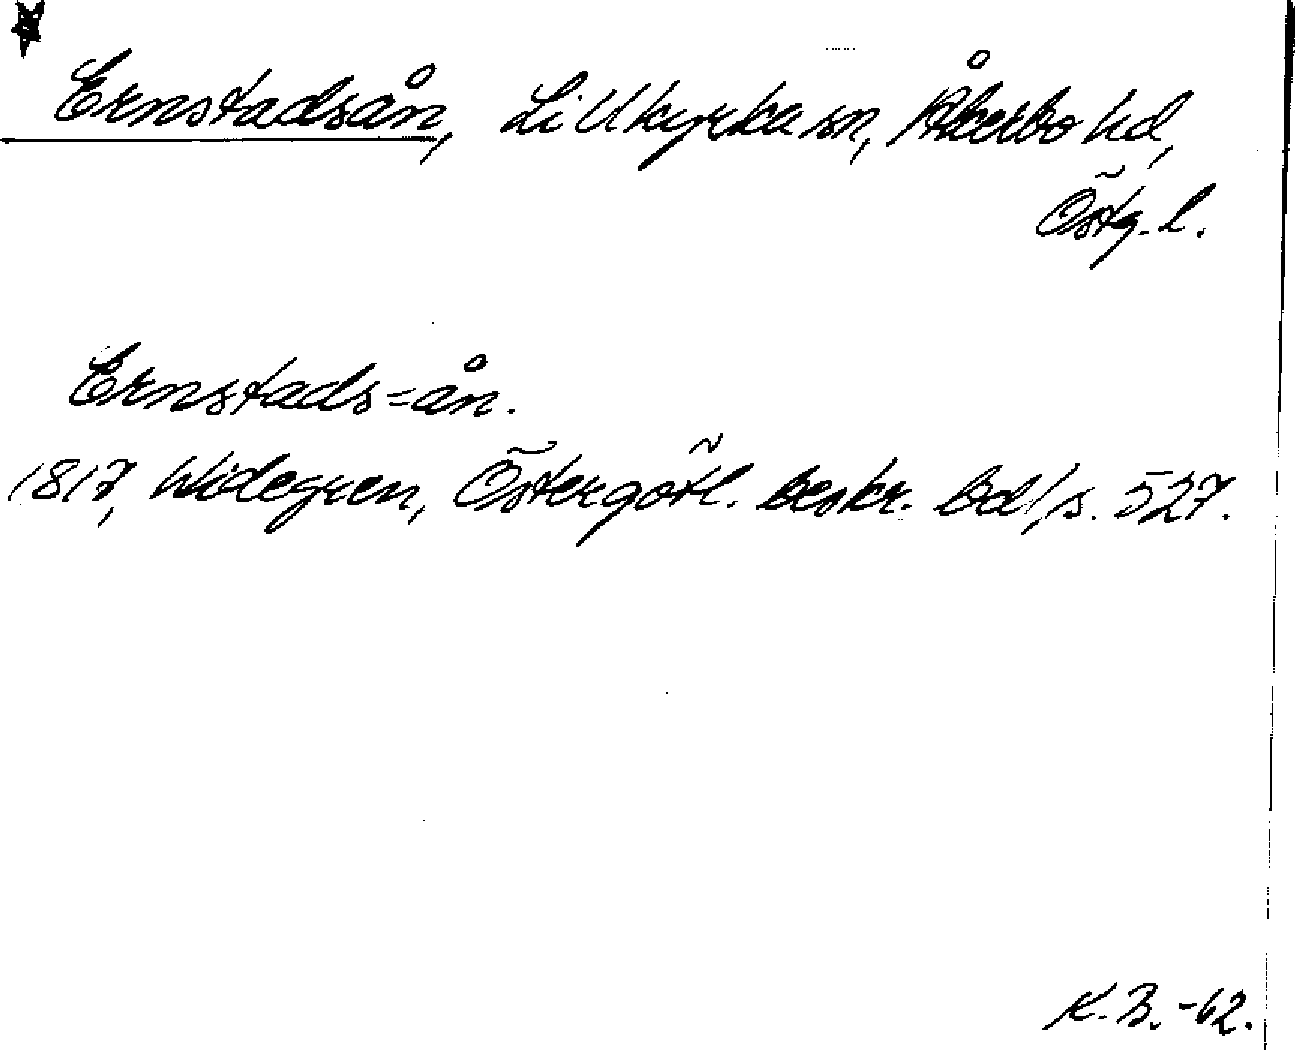 Ernstadsån, Lillkyrka sn, Åkerbo hd,
Östg. l.
Ernstads=ån.
1817, Widegren, Östergötl. beskr. Bd 1, s. 527.
K. B. -62.